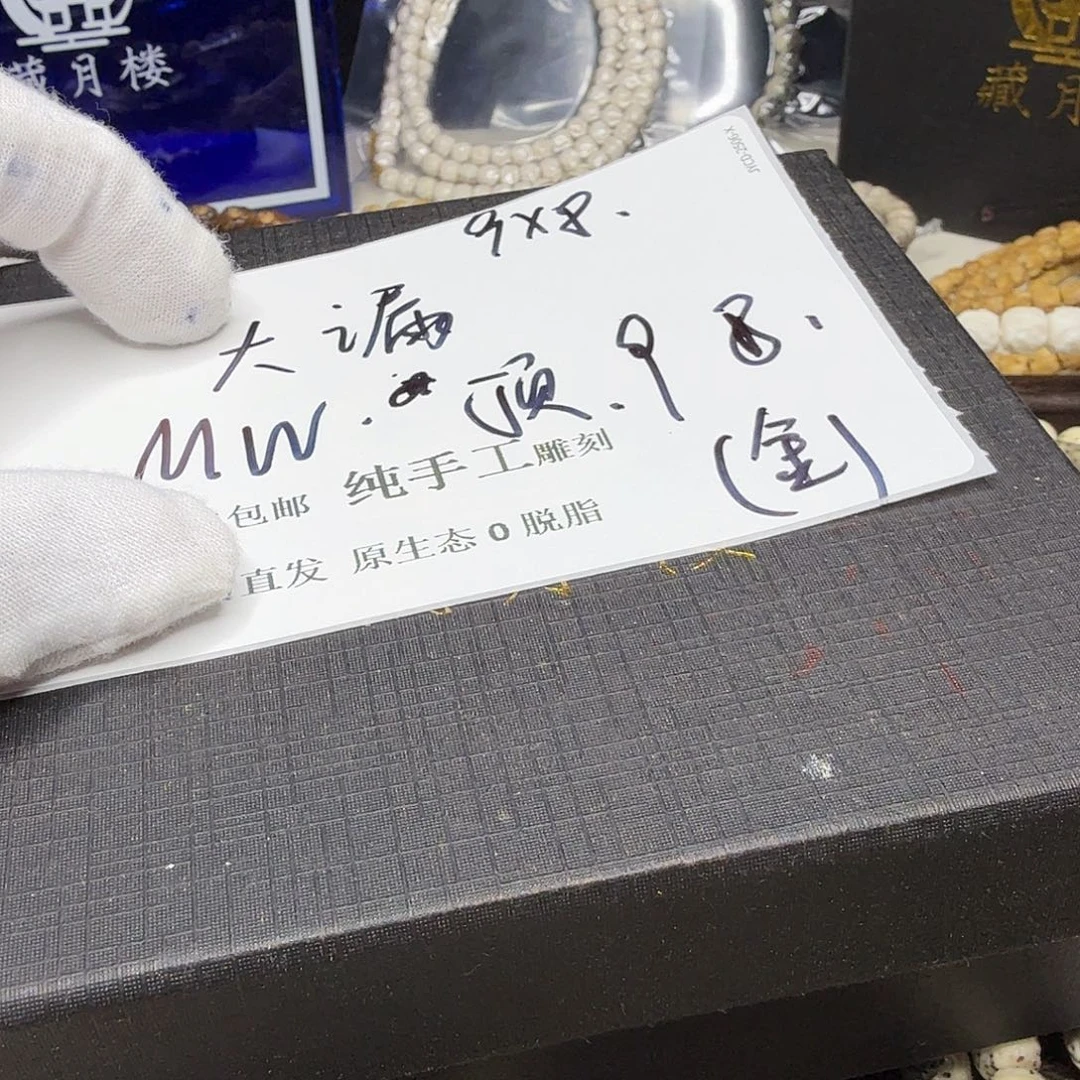 藏月楼
藏月
JYCD-2506-X
9x8.
大漏
MW. 顶. 9 8.
(金)
包邮 纯手工雕刻
直发 原生态0脱脂